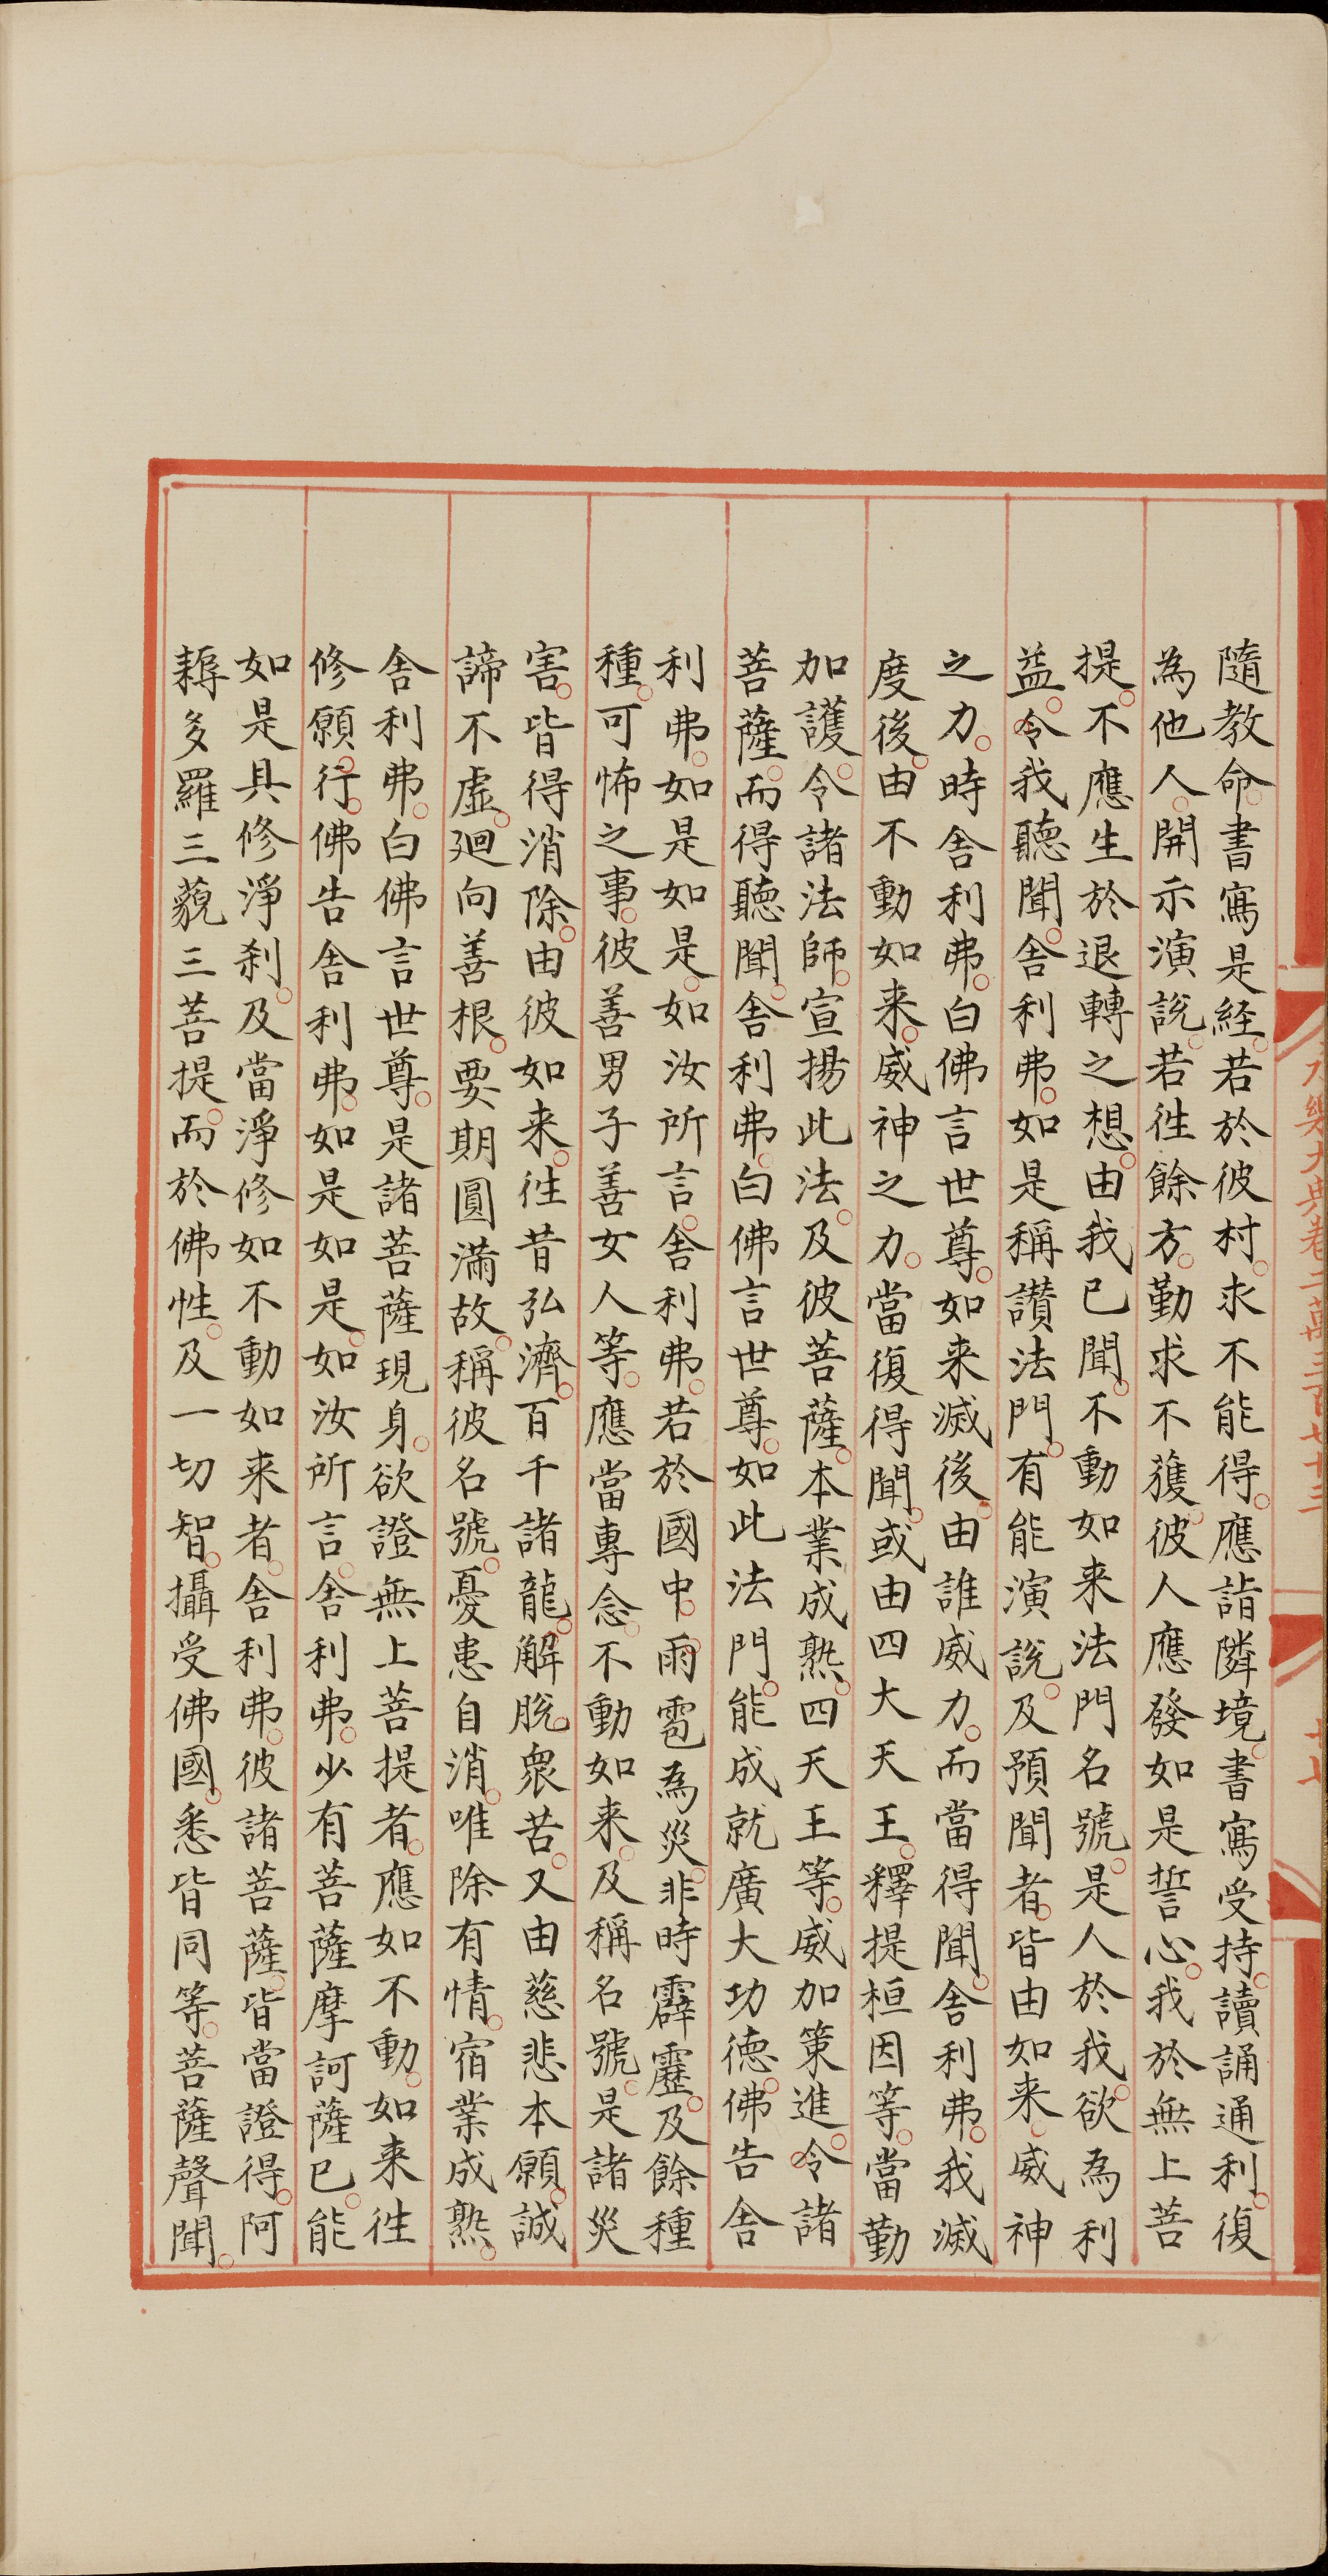 隨教命。書寫是経。若於彼村。求不能得。應詣隣境。書寫受持。讀誦通利。復
為他人。開示演說。若徃餘方。勤求不獲。彼人應發如是誓心。我於無上菩
提。不應生於退轉之想。由我已聞。不動如来法門名號。是人於我。欲為利
益。令我聽聞。舎利弗。如是稱讃法門。有能演說。及預聞者。皆由如来。威神
之力。時舎利弗。白佛言世尊。如来滅後。由誰威力。而當得聞。舎利弗。我滅
度後。由不動如来。威神之力。當復得聞。或由四大天王。釋提桓因等。當勤
加護。令諸法師。宣揚此法。及彼菩薩。本業成熟。四天王等。威加策進。令諸
菩薩。而得聽聞。舎利弗。白佛言世尊。如此法門。能成就廣大功徳。佛告舎
利弗。如是如是。如汝所言。舎利弗。若於國中。雨雹為災。非時霹靂。及餘種
種。可怖之事。彼善男子善女人等。應當專念。不動如来。及稱名號。是諸災
害。皆得消除。由彼如来。徃昔弘濟。百千諸龍。解脫衆苦。又由慈悲本願。誠
諦不虛。廻向善根。要期圓滿故。稱彼名號。憂患自消。唯除有情。宿業成熟。
舎利弗。白佛言世尊。是諸菩薩現身。欲證無上菩提者。應如不動。如来徃
修願。行。佛告舎利弗。如是如是。如汝所言。舎利弗。少有菩薩摩訶薩已。能
如是具修淨刹。及當淨修如不動如来者。舎利弗。彼諸菩薩。皆當證得。阿
耨多羅三藐三菩提。而於佛性。及一切智。攝受佛國。悉皆同等。菩薩聲聞。
永樂大典卷二萬三百七十三
十七